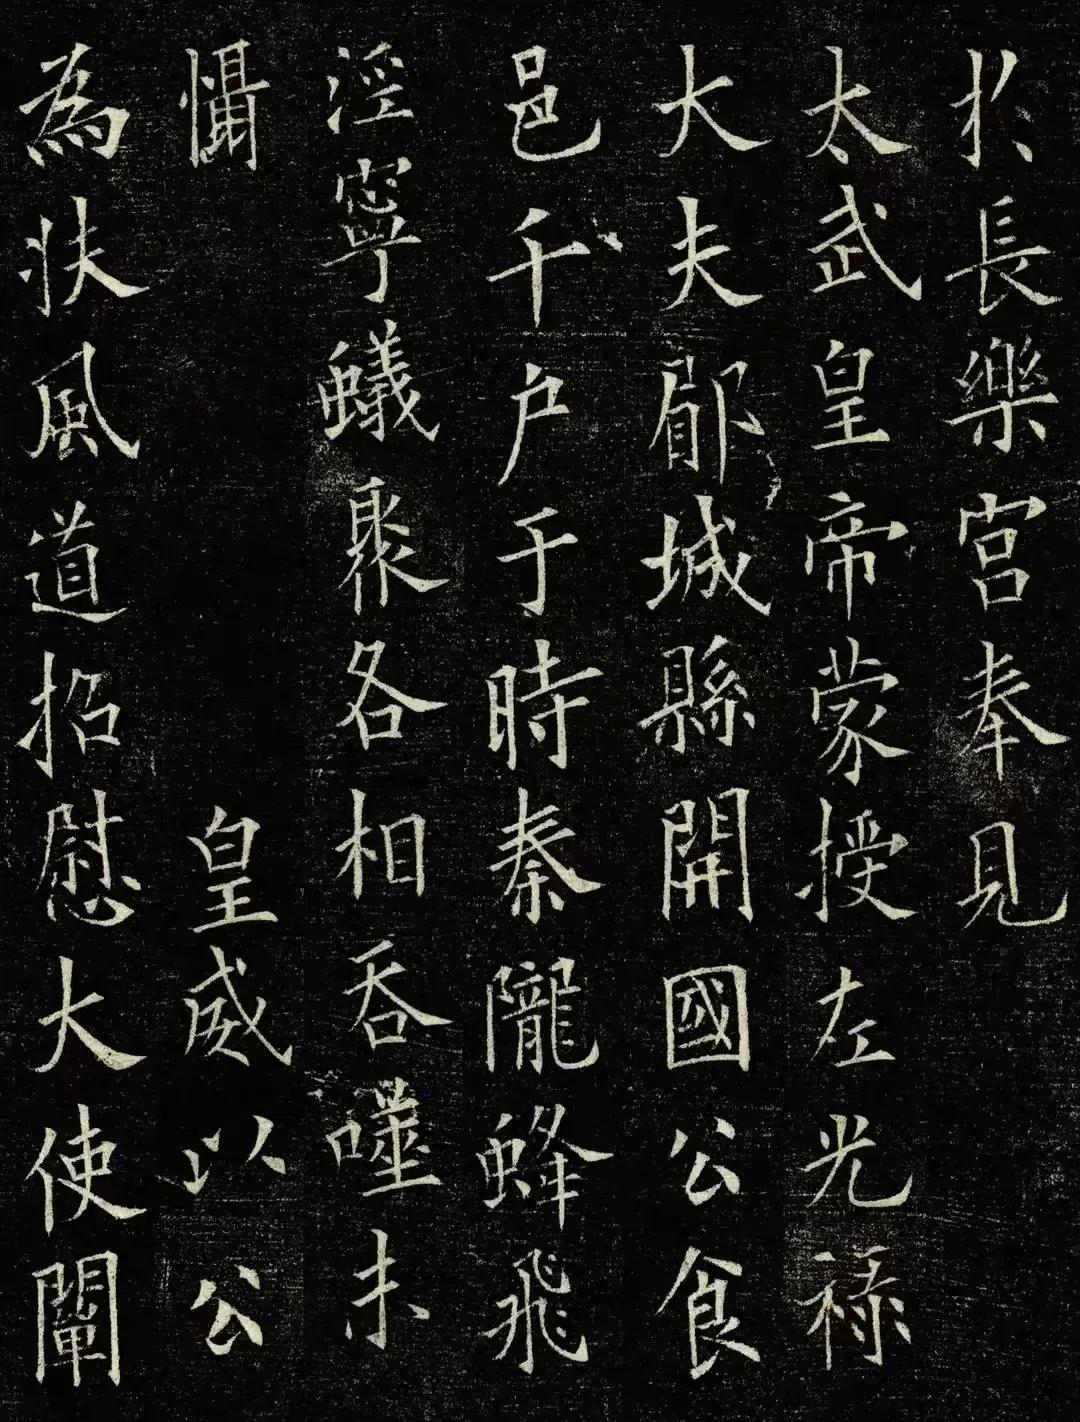 於長樂宮奉見
太武皇帝蒙授左光祿
大夫郿城縣開國公食
邑千户于時秦隴蜂飛
涇寧蟻聚各相吞噬未
懾皇威以公
為扶風道招慰大使闡